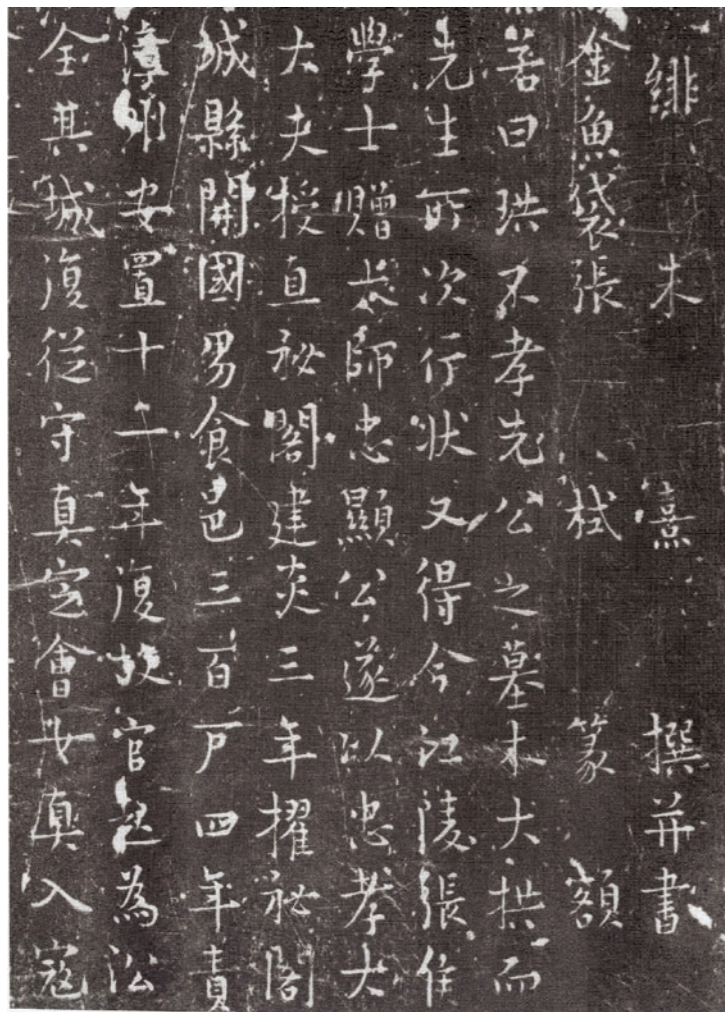 緋朱熹撰并書
金魚袋張栻篆額
若曰珙不孝先公之墓木大拱而
先生所次行状又得今江陵張侯
學士贈太師忠顯公遂以忠孝大
大夫授直祕閣建炎三年擢祕閣
城縣開國男食邑三百户四年責
漳州安置十二年復故官起為沿
全其城復從守真定會女真入寇